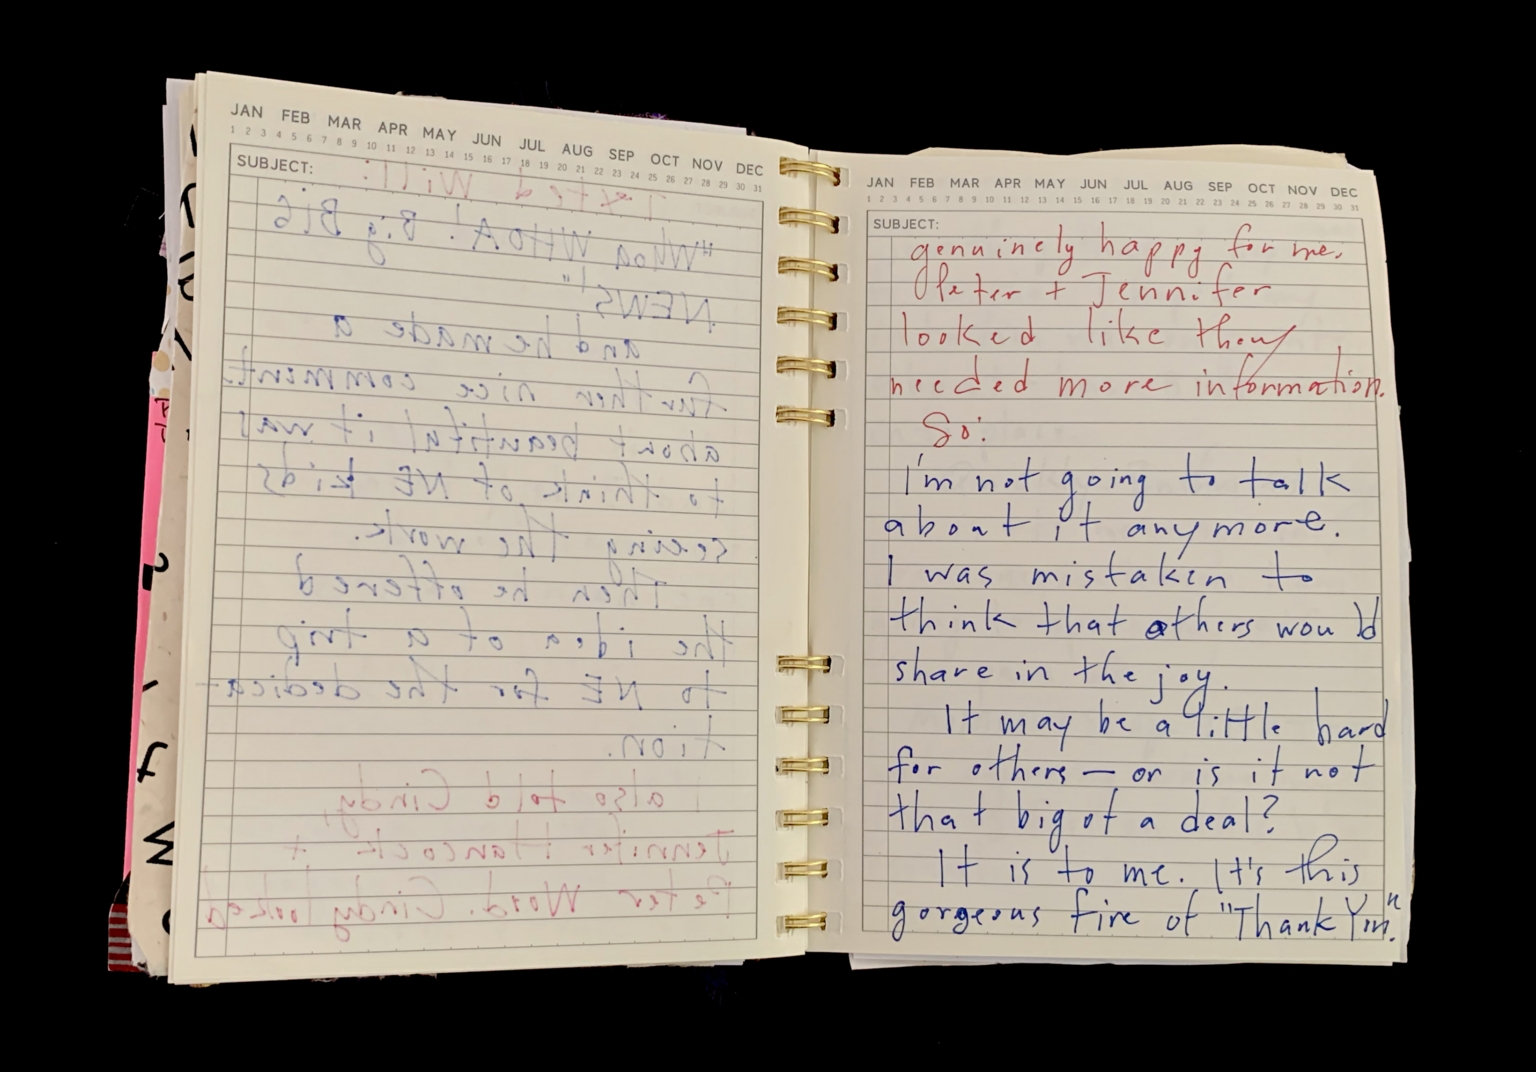 JAN FEB MAR APR MAY JUN JUL AUG SEP OCT NOV DEC
1 2 3 4 5 6 7 8 9 10 11 12 13 14 15 16 17 18 19 20 21 22 23 24 25 26 27 28 29 30 31
SUBJECT:
Texted Will:
"Whoa WHOA! Big BIG
NEWS!"
and he made a
further nice comment
about beautiful it was
to think of NE kids
seeing the work.
Then he offered
the idea of a trip
to NE for the dedica-
tion.
I also told Cindy,
Jennifer Hancock +
Peter Word. Cindy looked
JAN FEB MAR APR MAY JUN JUL AUG SEP OCT NOV DEC
1 2 3 4 5 6 7 8 9 10 11 12 13 14 15 16 17 18 19 20 21 22 23 24 25 26 27 28 29 30 31
SUBJECT:
genuinely happy for me.
Peter + Jennifer
looked like they
needed more information.
So:
I'm not going to talk
about it anymore.
I was mistaken to
think that others would
share in the joy.
It may be a little hard
for others — or is it not
that big of a deal?
It is to me. It's this
gorgeous fire of "Thank You."